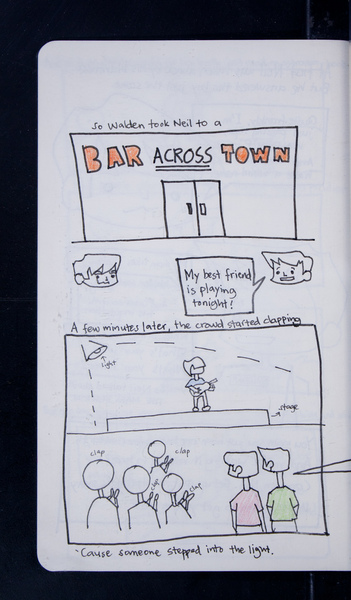 so Walden took Neil to a
BAR ACROSS TOWN
My best friend
is playing
tonight!
A few minutes later, the crowd started clapping
light
stage
clap
clap
clap
clap
'Cause someone stepped into the light.